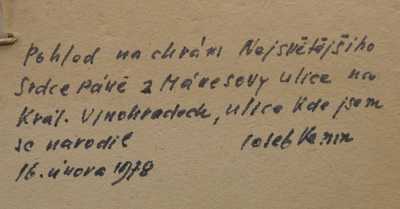 Pohled na chrám Nejsvětějšího
Srdce Páně z Mánesovy ulice na
Král. Vinohradech, ulice kde jsem
se narodil
16. února 1978